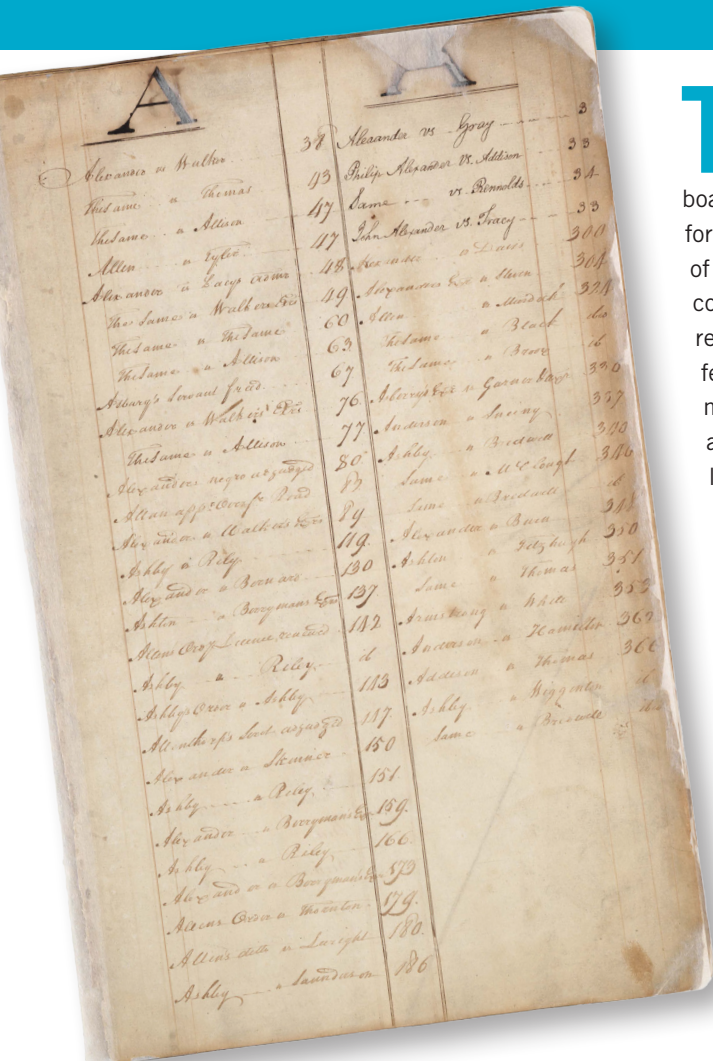 A
Alexander a Walker 38
The same a Thomas 43
The same a Allison 47
Allen a Tyler 47
Alexander a Lacys 48
The Same a Walkers Exrs 49
The same a The same 60
The same a Allison 63
Asburys Servant freed 67
Alexander a Walkers Exrs 76
The Same a Allison 77
Alexanders negro adjudged 80
Allan appd Road
Alexander a Walkers Exrs 89
Ashby a Rily 119
Alexander a Bernard 130
Ashton a Berrymans 137
Allens Ordy License renewed 142
Ashby a Riley
Ashbys Orson a Ashby 143
Servt adjudged 147
Alexander a Skinner 150
Ashby a Riley 151
Alexander a Berrymans 159
Ashby a Riley 166
Alexander a Berrymans 173
Allens a Thornton 179
Allens a 180
Ashby a Saunderson 186
A
Alexander vs Gray 3
Philip Alexander vs. Addison 33
Same vs Rennolds 34
John Alexander vs. Tracy 33
Alexander a Davis 300
Alexanders a 304
Allen a Murdock 324
The same a Black do
The Same a
a 330
Anderson a 337
Ashby a Bridwell 340
Same a 346
Same a Bridwell
Alexander a 348
Ashton a Fitzhugh 350
Same a Thomas 351
Armstrong a White 353
Anderson a Hamilton 362
Addison a Thomas
Ashby a Wigginton
Same a Bridwell
T
boa
for
of
co
re
fe
n
a
l